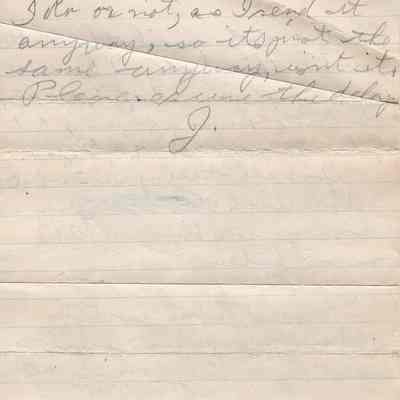 I do or not, as I send it
anyway, so its just the
same anyway, isn't it.
Please excuse the delay
J.